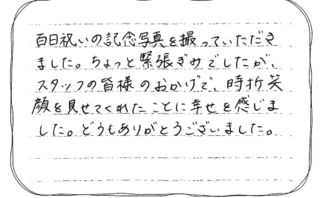 百日祝いの記念写真を撮っていただき
ました。ちょっと緊張ぎみでしたが、
スタッフの皆様のおかげで、時折笑
顔を見せてくれたことに幸せを感じま
した。どうもありがとうございました。